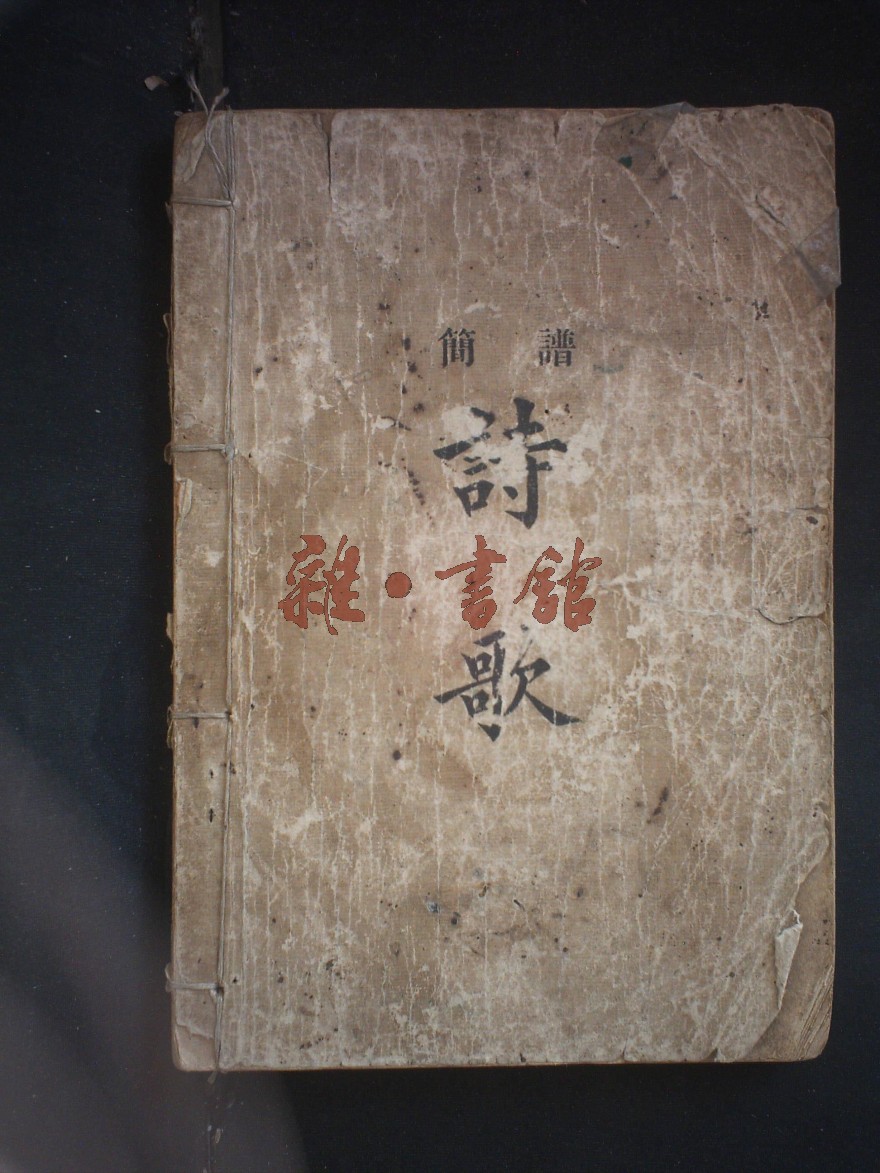 簡 譜
詩
雜·書館
歌